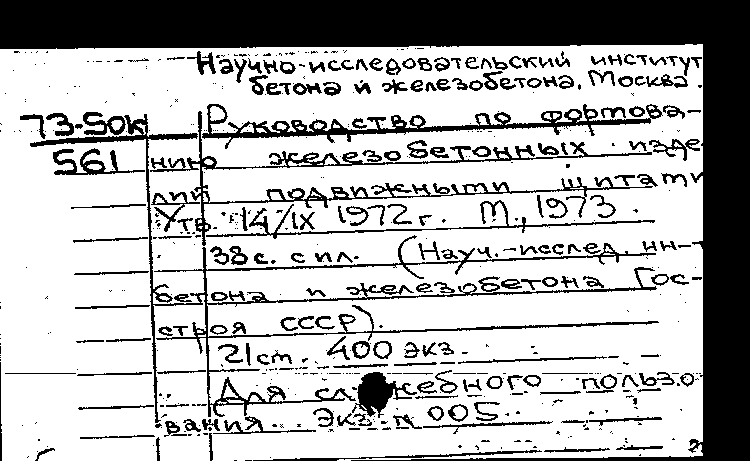 Научно-исследовательский институт
бетона и железобетона, Москва.
73-50к Руководство по фортова-
561 нию железобетонных изде-
лий подвижными щитами
Утв. 14/IX 1972 г. М., 1973.
38 с. с ил. (Науч.-исслед. ин-т
бетона и железобетона Гос-
строя СССР).
21 см. 400 экз.
Для служебного пользо
вания. Экз. N 005.